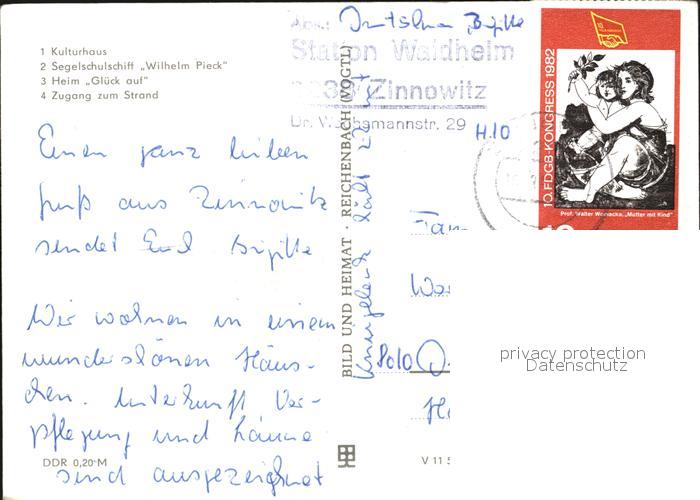 1 Kulturhaus
2 Segelschulschiff „Wilhelm Pieck“
3 Heim „Glück auf“
4 Zugang zum Strand
Einen ganz lieben
gruß aus Zinnowitz
sendet Euch Brigitte
Wir wohnen in einem
wunderschönen Häus-
chen. Unterkunft Ver-
pflegung und Laune
sind ausgezeichnet
DDR 0,20 M
BILD UND HEIMAT · REICHENBACH (VOGTL)
V 11 5
Abs.: Brigitte
Station Waldheim
Zinnowitz
Dr. Wachsmannstr. 29
H.10
Fam
8010
10. FDGB-KONGRESS 1982
Prof. Walter Womacka, „Mutter mit Kind“
10
privacy protection
Datenschutz